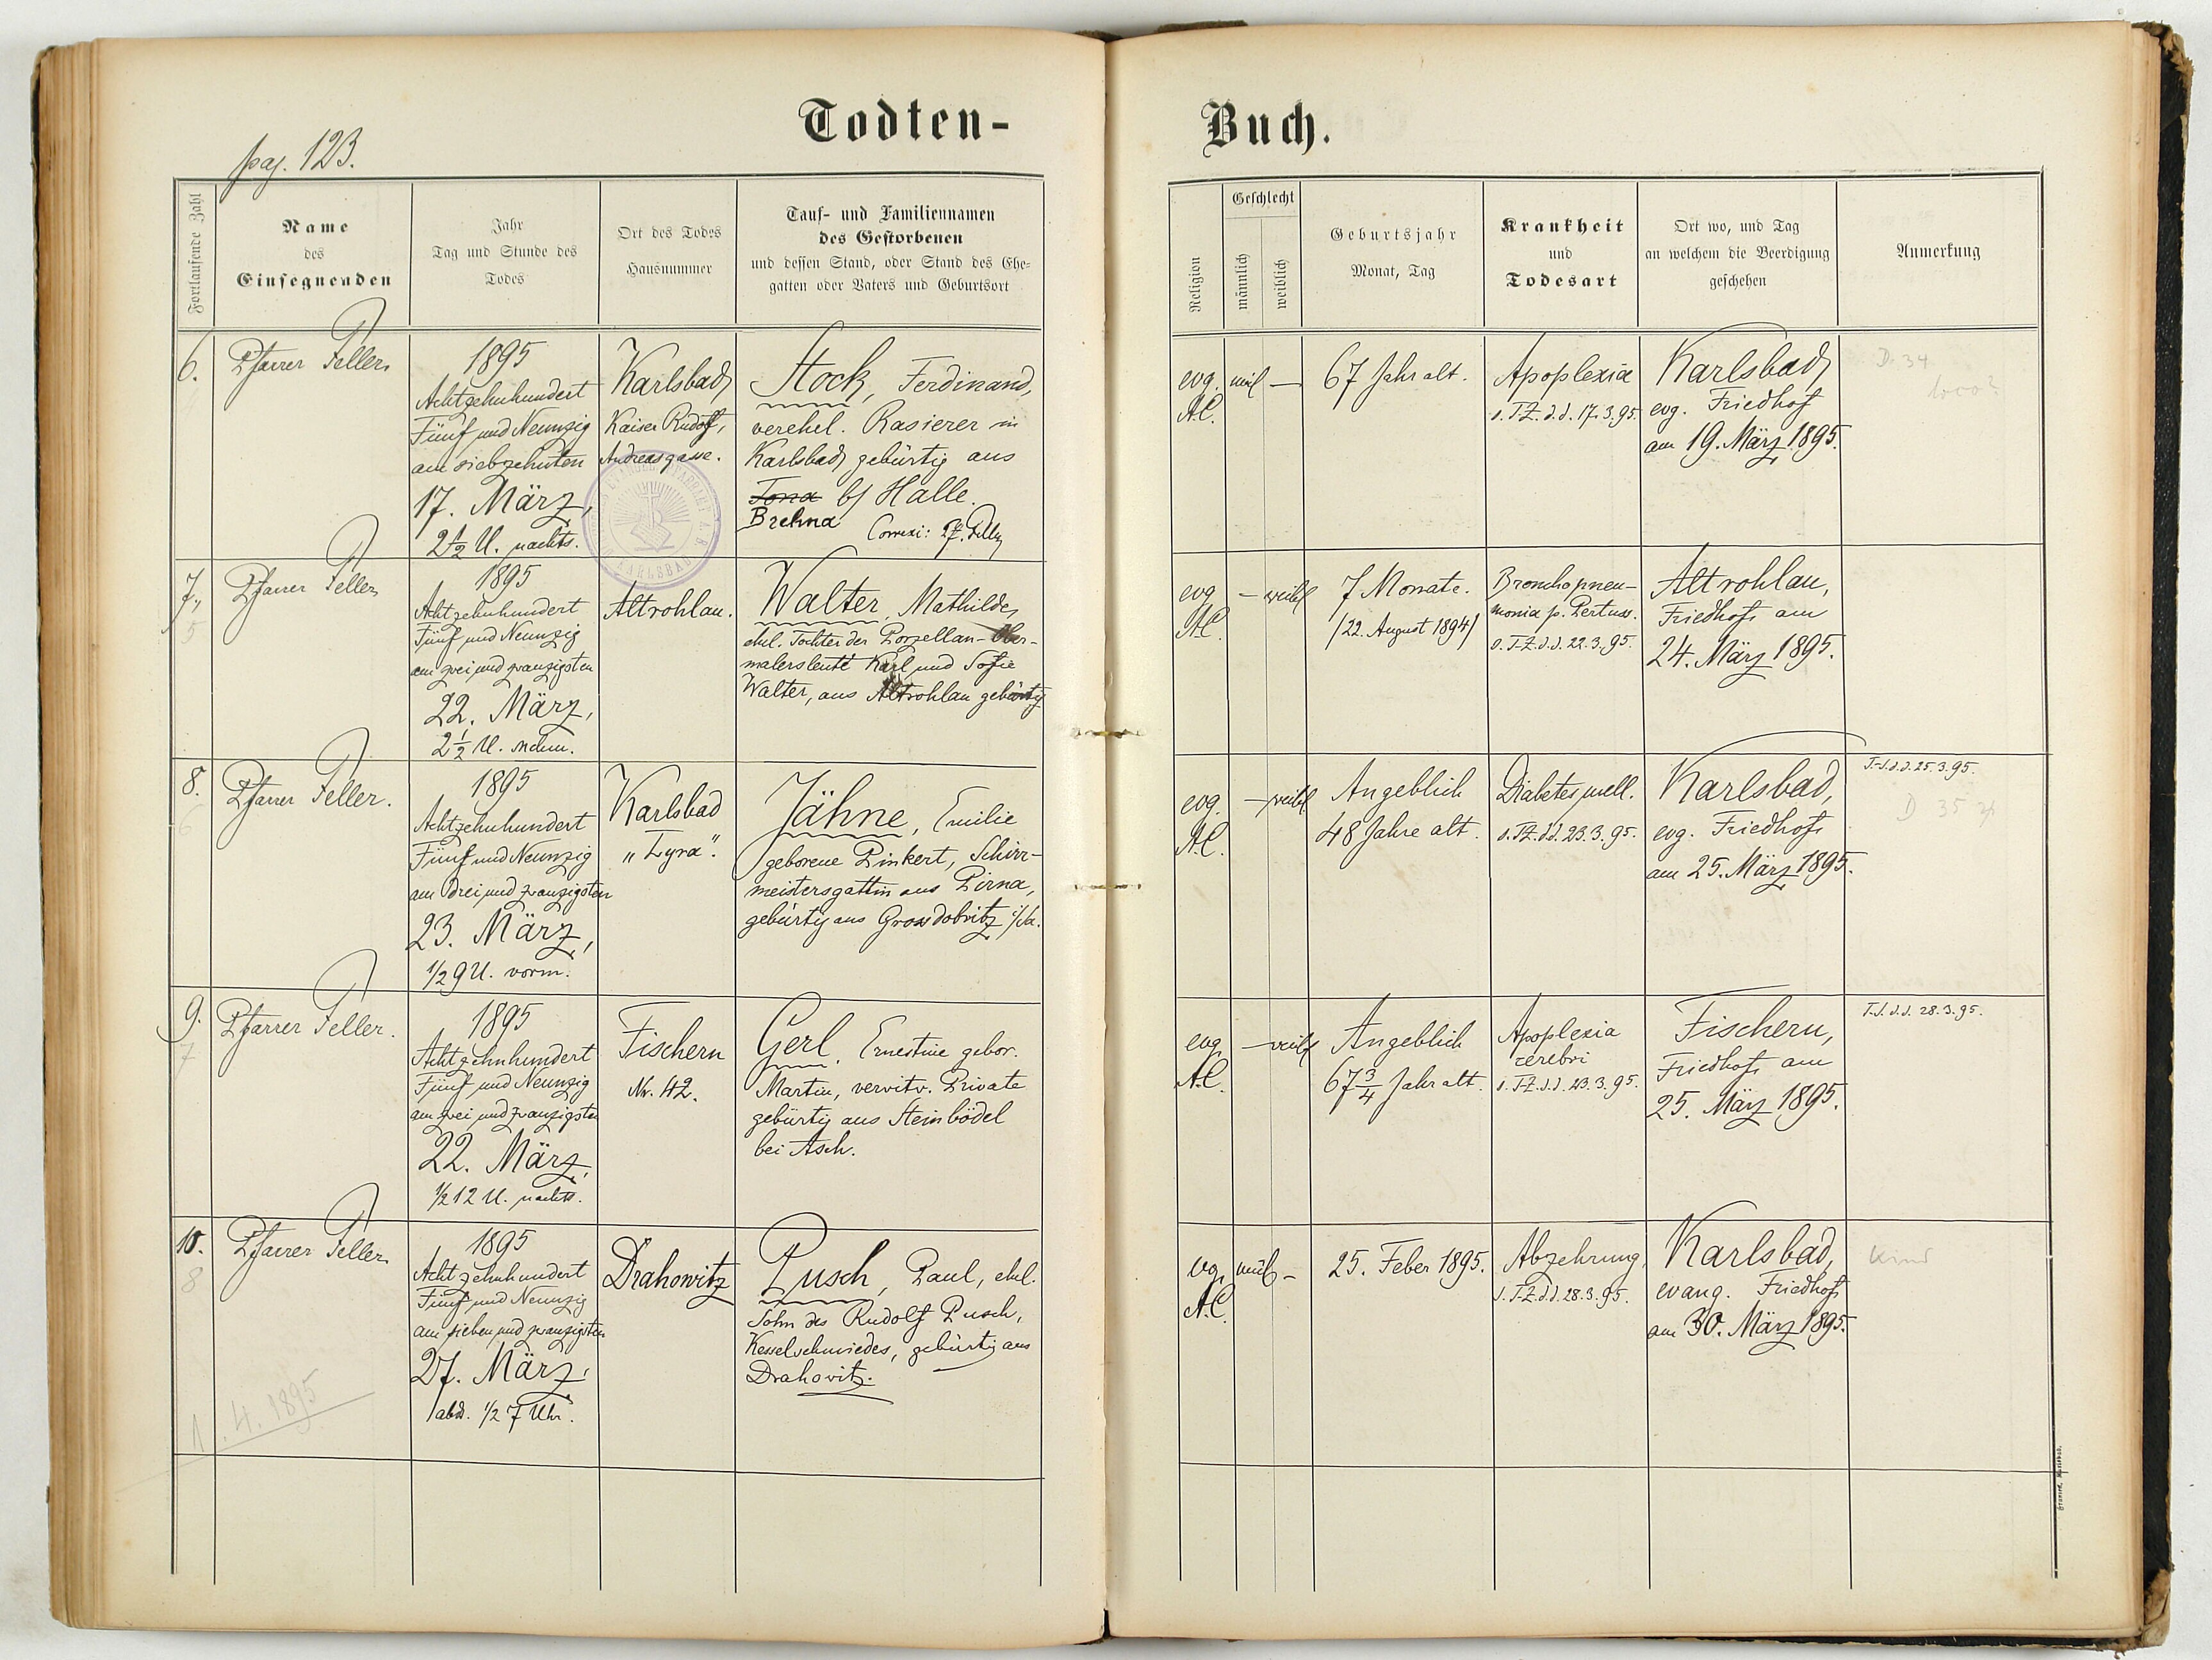 Todten-
pag. 123.
Fortlaufende Zahl
Name
des
Einsegnenden
Jahr
Tag und Stunde des
Todes
Ort des Todes
Hausnummer
Tauf- und Familiennamen
des Gestorbenen
und dessen Stand, oder Stand des Ehe-
gatten oder Vaters und Geburtsort
6.
Pfarrer Feller
1895
Achtzehnhundert
Fünf und Neunzig
am siebzehnten
17. März,
2½ U. nachts.
Karlsbad,
Kaiser Rudolf,
Andreasgasse.
Stock, Ferdinand,
verehel. Rasierer in
Karlsbad, gebürtig aus
b/ Halle.
Brehna
Correxi: Pf. Feller
KARLSBAD
7.
5
Pfarrer Feller
1895
Achtzehnhundert
Fünf und Neunzig
am zwei und zwanzigsten
22. März,
2½ U. nachm.
Altrohlau.
Walter, Mathilde,
ehel. Tochter der Porzellan-Ober-
malersleute Karl und Sofie
Walter, aus Altrohlau gebürtig
8.
6
Pfarrer Feller.
1895
Achtzehnhundert
Fünf und Neunzig
am drei und zwanzigsten
23. März,
1/2 9 U. vorm.
Karlsbad
"Lyra".
Jähne, Emilie
geborene Pinkert, Schirr-
meistersgattin aus Pirna,
gebürtig aus Grossdobritz i/Sa.
9.
7
Pfarrer Feller.
1895
Achtzehnhundert
Fünf und Neunzig
am zwei und zwanzigsten
22. März,
1/2 12 U. nachts.
Fischern
Nr. 42.
Gerl, Ernestine gebor.
Martin, verwitw. Private
gebürtig aus Steinbödel
bei Asch.
10.
8
Pfarrer Feller
1895
Achtzehnhundert
Fünf und Neunzig
am sieben und zwanzigsten
27. März,
abds. 1/2 7 Uhr.
Drahowitz
Pusch, Paul, ehel.
Sohn des Rudolf Pusch,
Kesselschmiedes, gebürtig aus
Drahovitz.
1. 4. 1895
Buch.
Religion
Geschlecht
männlich
weiblich
Geburtsjahr
Monat, Tag
Krankheit
und
Todesart
Ort wo, und Tag
an welchem die Beerdigung
geschehen
Anmerkung
evg.
A.C.
ml –
67 Jahr alt.
Apoplexia
s. T.Z. d.d. 17.3.95.
Karlsbad,
evg. Friedhof
am 19. März 1895.
D. 34
evg
A.C.
– weibl
7 Monate.
/22. August 1894/
Bronchopneu-
monia p. Pertuss.
s. T.Z. d.d. 22.3.95.
Altrohlau,
Friedhof, am
24. März 1895.
evg.
A.C.
– weibl
Angeblich
48 Jahre alt.
Diabetes mell.
s. T.Z. d.d. 23.3.95.
Karlsbad,
evg. Friedhof,
am 25. März 1895.
T.S. d.d. 25.3.95.
D 35
evg
A.C.
– weibl
Angeblich
67 3/4 Jahr alt.
Apoplexia
cerebri
s. T.Z. d.d. 23.3.95.
Fischern,
Friedhof, am
25. März 1895.
T.S. d.d. 28.3.95.
evg.
A.C.
ml –
25. Feber 1895.
Abzehrung,
s. T.Z. d.d. 28.3.95.
Karlsbad,
evang. Friedhof,
am 30. März 1895.
Kind